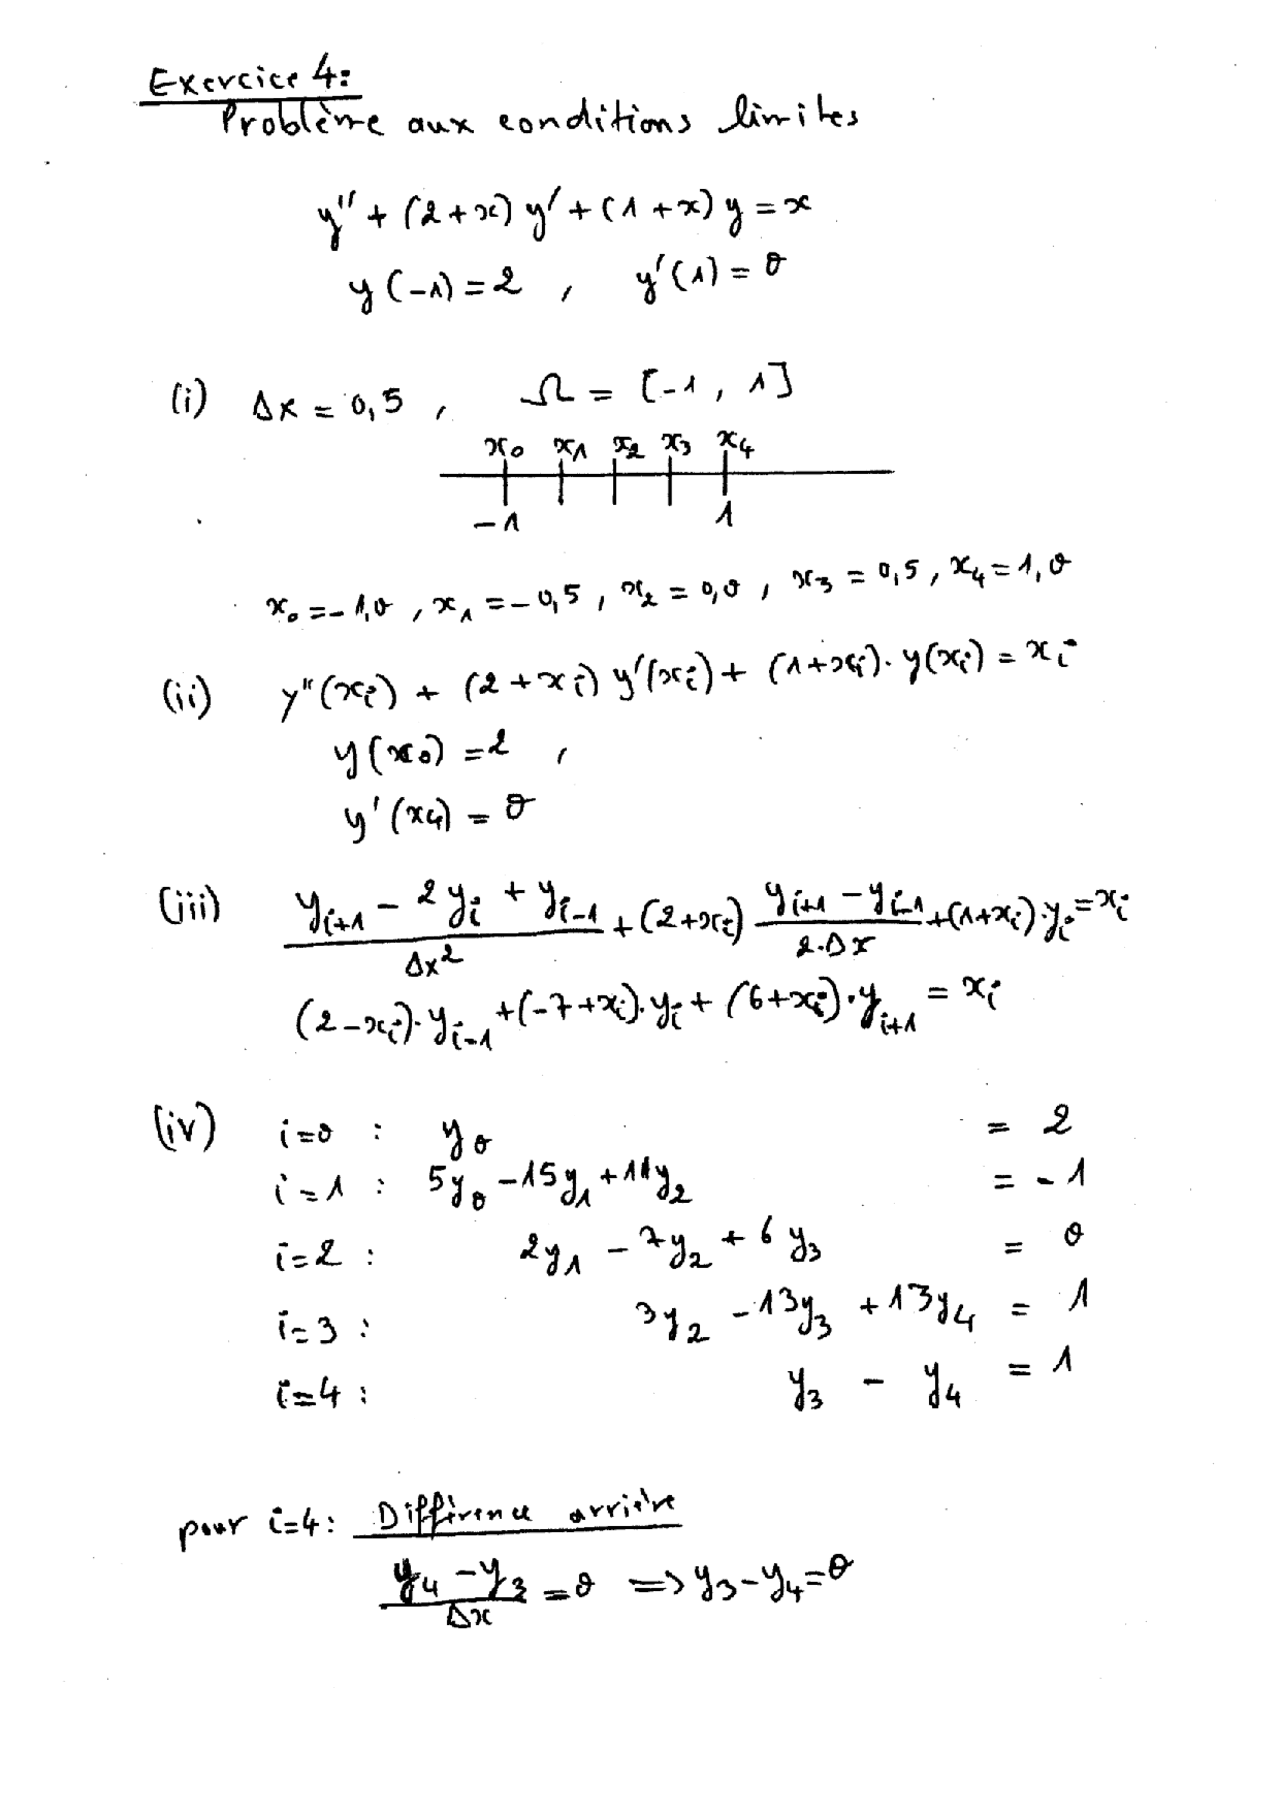 Exercice 4:
Problème aux conditions limites
y'' + (2+x) y' + (1+x) y = x
y(-1) = 2 , y'(1) = 0
(i) Δx = 0,5 , Ω = [-1, 1]
x₀ x₁ x₂ x₃ x₄
-1 1
x₀ = -1,0 , x₁ = -0,5 , x₂ = 0,0 , x₃ = 0,5 , x₄ = 1,0
(ii) y''(xᵢ) + (2+xᵢ) y'(xᵢ) + (1+xᵢ)·y(xᵢ) = xᵢ
y(x₀) = 2 ,
y'(x₄) = 0
(iii) (yᵢ₊₁ - 2yᵢ + yᵢ₋₁)/Δx² + (2+xᵢ) (yᵢ₊₁ - yᵢ₋₁)/(2·Δx) + (1+xᵢ)·yᵢ = xᵢ
(2-xᵢ)·yᵢ₋₁ + (-7+xᵢ)·yᵢ + (6+xᵢ)·yᵢ₊₁ = xᵢ
(iv) i=0 : y₀ = 2
i=1 : 5y₀ - 15y₁ + 11y₂ = -1
i=2 : 2y₁ - 7y₂ + 6y₃ = 0
i=3 : 3y₂ - 13y₃ + 13y₄ = 1
i=4 : y₃ - y₄ = 1
pour i=4 : Différence arrière
(y₄ - y₃)/Δx = 0 ⟹ y₃ - y₄ = 0